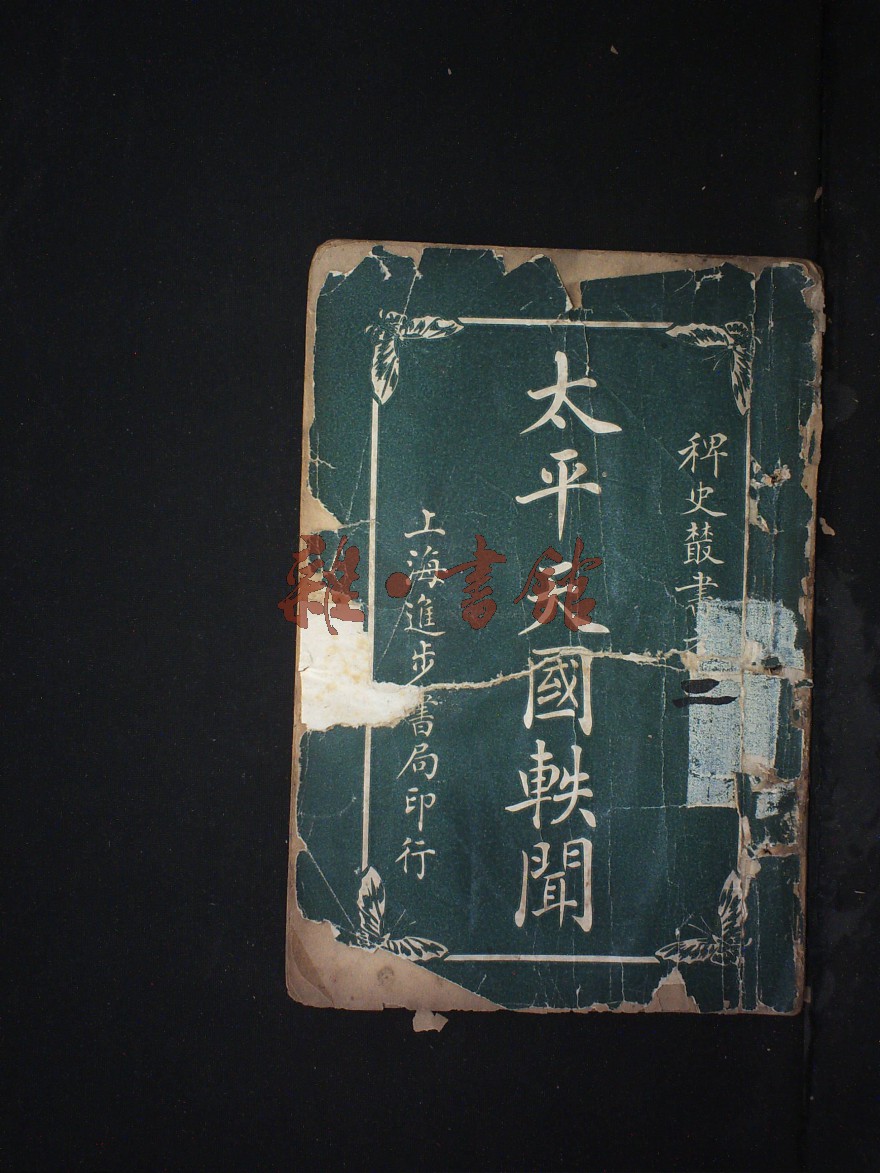 稗史叢書之二
太平天國軼聞
上海進步書局印行
雜·書館